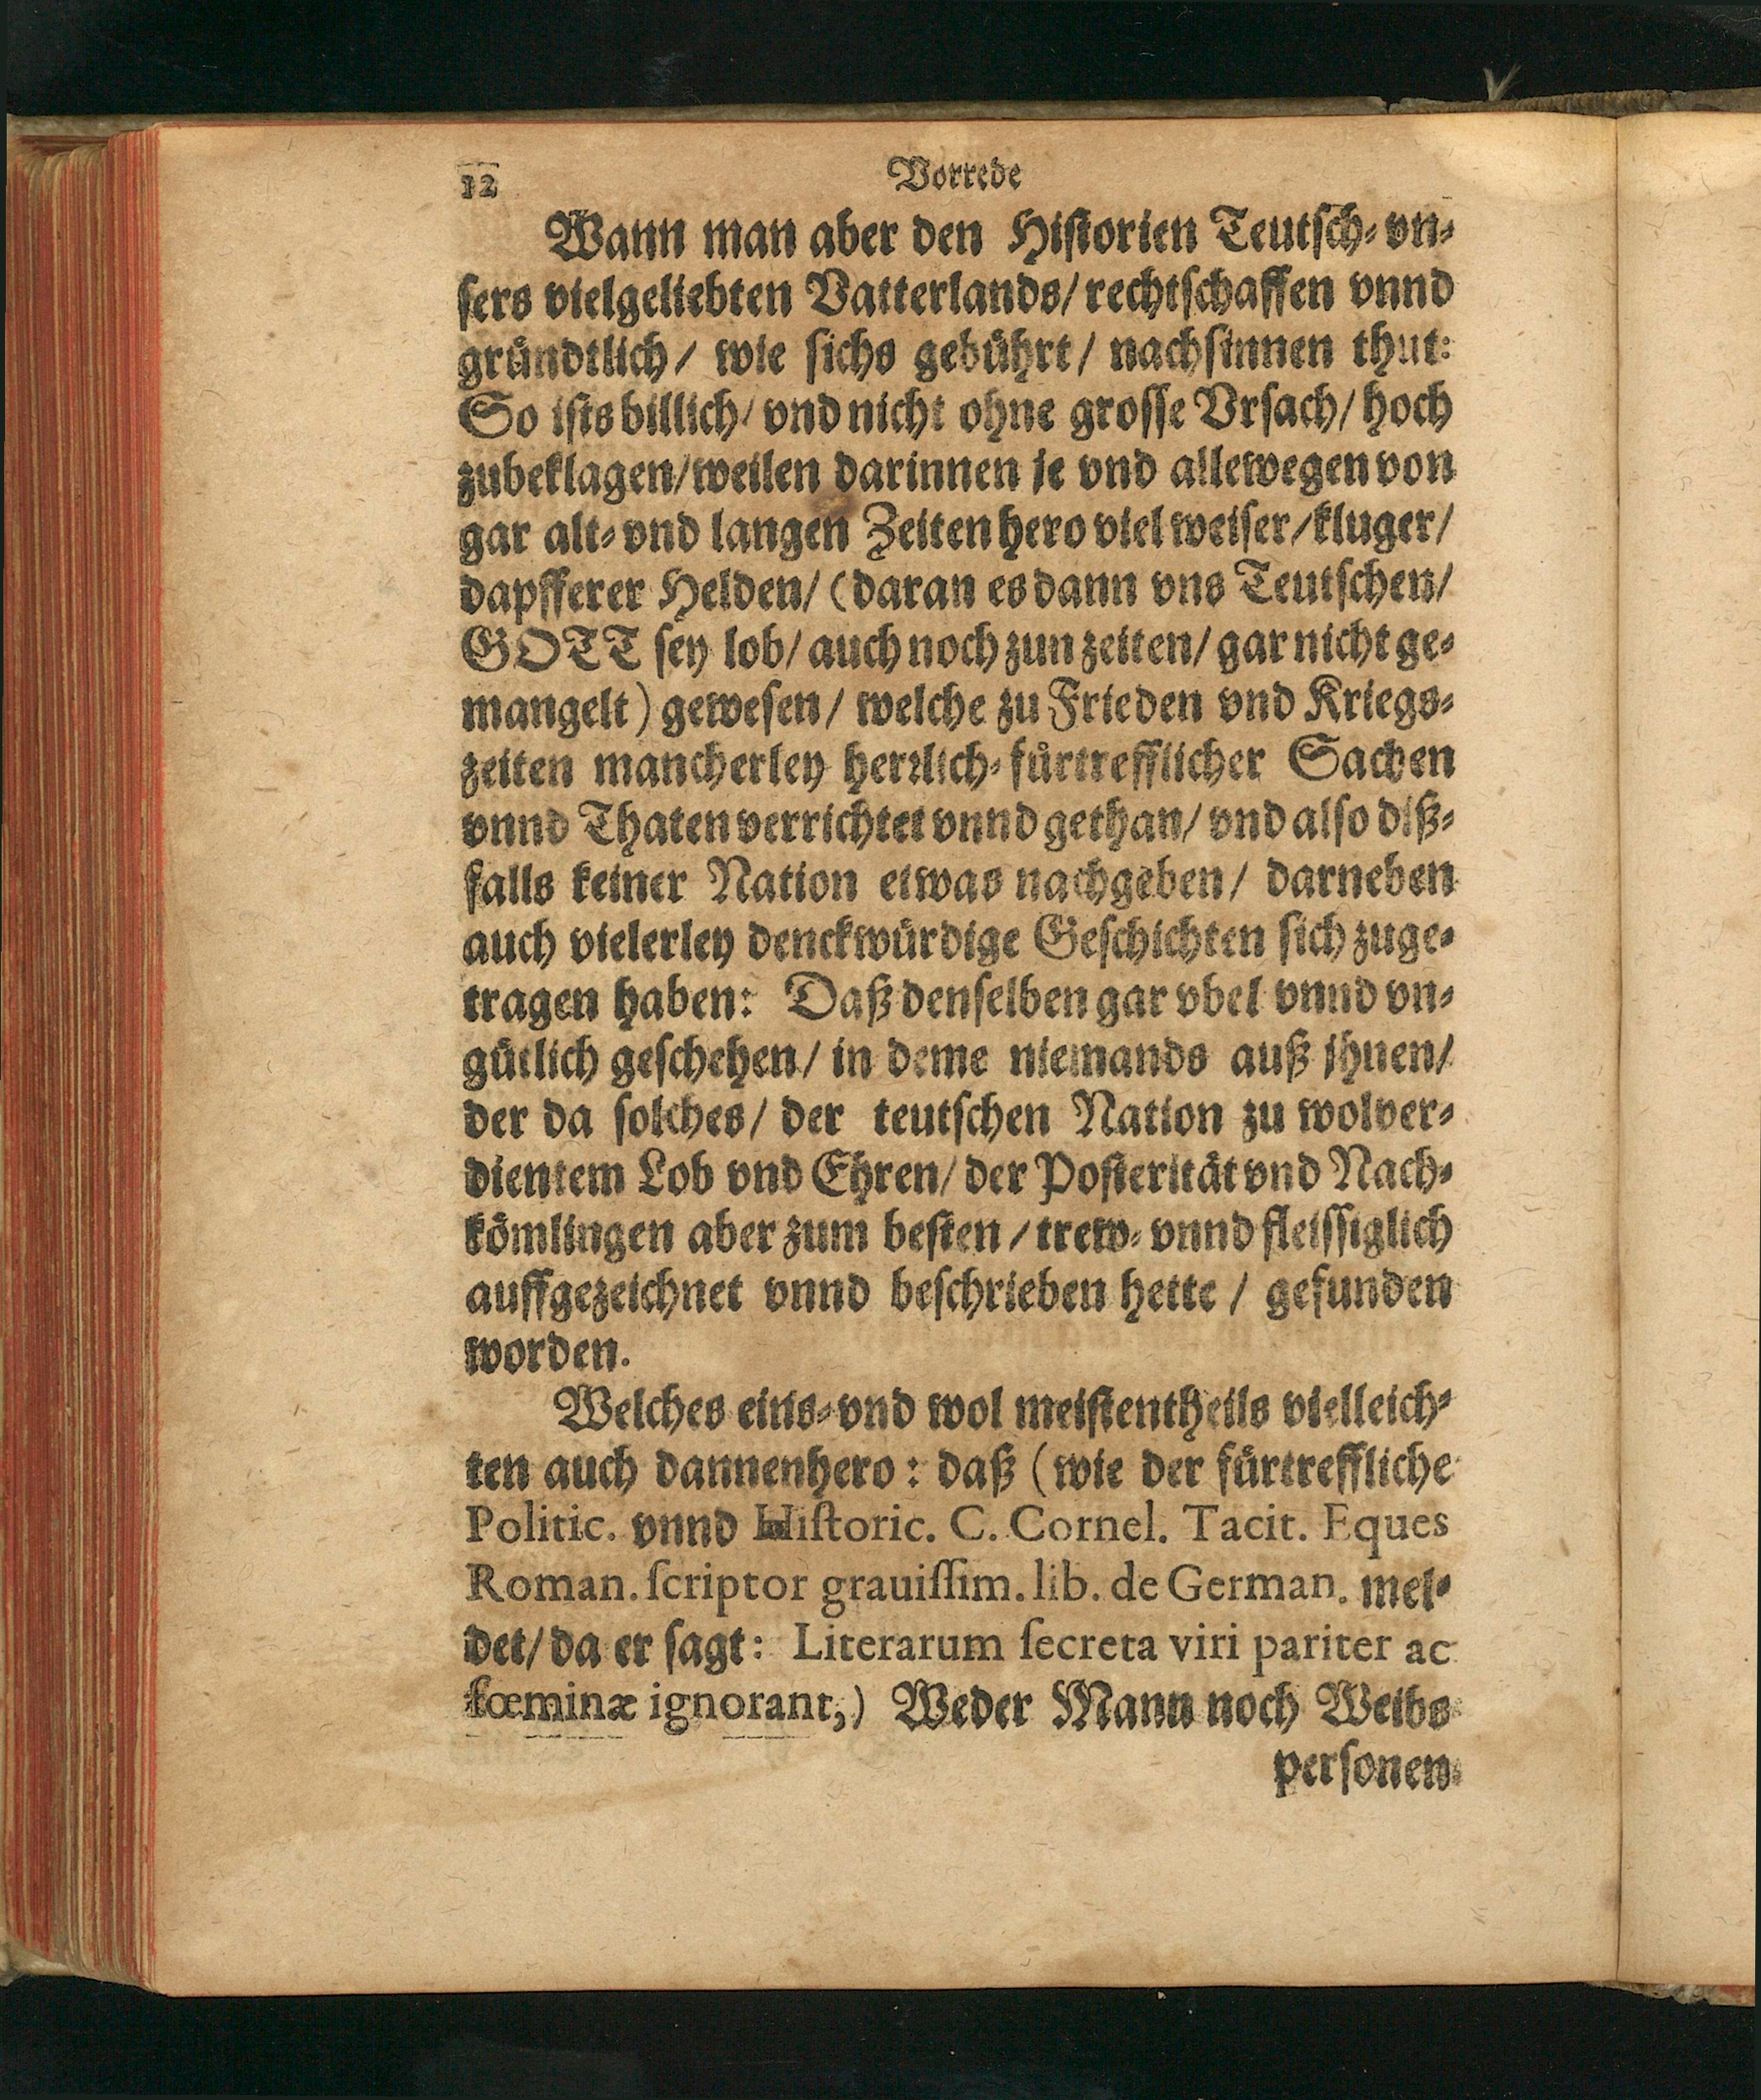 12 Vorrede
Wann man aber den Historien Teutsch- vn-
sers vielgeliebten Vatterlands/ rechtschaffen vnnd
gründtlich/ wie sichs gebührt/ nachsinnen thut:
So ists billich/ vnd nicht ohne grosse Vrsach/ hoch
zubeklagen/ weilen darinnen je vnd allewegen von
gar alt- vnd langen Zeiten hero viel weiser/ kluger/
dapfferer Helden/ (daran es dann vns Teutschen/
GOTT sey lob/ auch noch zun zeiten/ gar nicht ge-
mangelt) gewesen/ welche zu Frieden vnd Kriegs-
zeiten mancherley herrlich- fürtrefflicher Sachen
vnnd Thaten verrichtet vnnd gethan/ vnd also diß-
falls keiner Nation etwas nachgeben/ darneben
auch vielerley denckwürdige Geschichten sich zuge-
tragen haben: Daß denselben gar vbel vnnd vn-
gütlich geschehen/ in deme niemands auß jhnen/
der da solches/ der teutschen Nation zu wolver-
dientem Lob vnd Ehren/ der Posterität vnd Nach-
kömlingen aber zum besten/ trew- vnnd fleissiglich
auffgezeichnet vnnd beschrieben hette/ gefunden
worden.
Welches eins- vnd wol meistentheils vielleich-
ten auch dannenhero: daß (wie der fürtreffliche
Politic. vnnd Hiſtoric. C. Cornel. Tacit. Eques
Roman. ſcriptor grauiſſim. lib. de German. mel-
det/ da er sagt: Literarum ſecreta viri pariter ac
fœminæ ignorant,) Weder Mann noch Weibs
personen